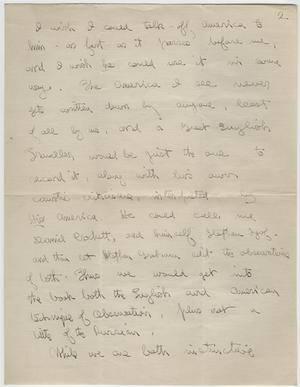 2.
I wish I could talk off America to
him - as fast as it passes before me,
and I wish he could see it in some
way. The America I see never
gets written down by anyone, least
of all by me, and a Great English
Traveller would be just the one to
record it, along with his own
caustic witticisms, interpreted by
His America. He could call me
Dermid Crockett, and himself Stephan
and then let Stephan edit the observations
of both. Thus we would get into
the book both the English and American
technique of observation, plus not a
little of the Russian.
While we are both instinctive